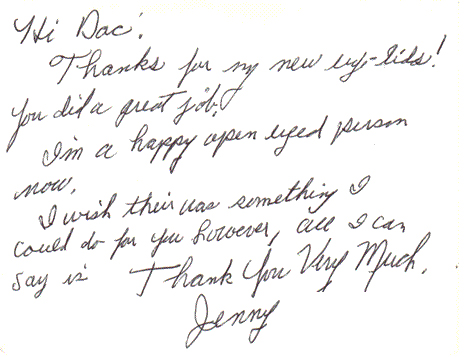 Hi Doc!
Thanks for my new eye-lids!
You did a great job!
I'm a happy open eyed person
now.
I wish their was something I
could do for you however, all I can
say is Thank You Very Much.
Jenny